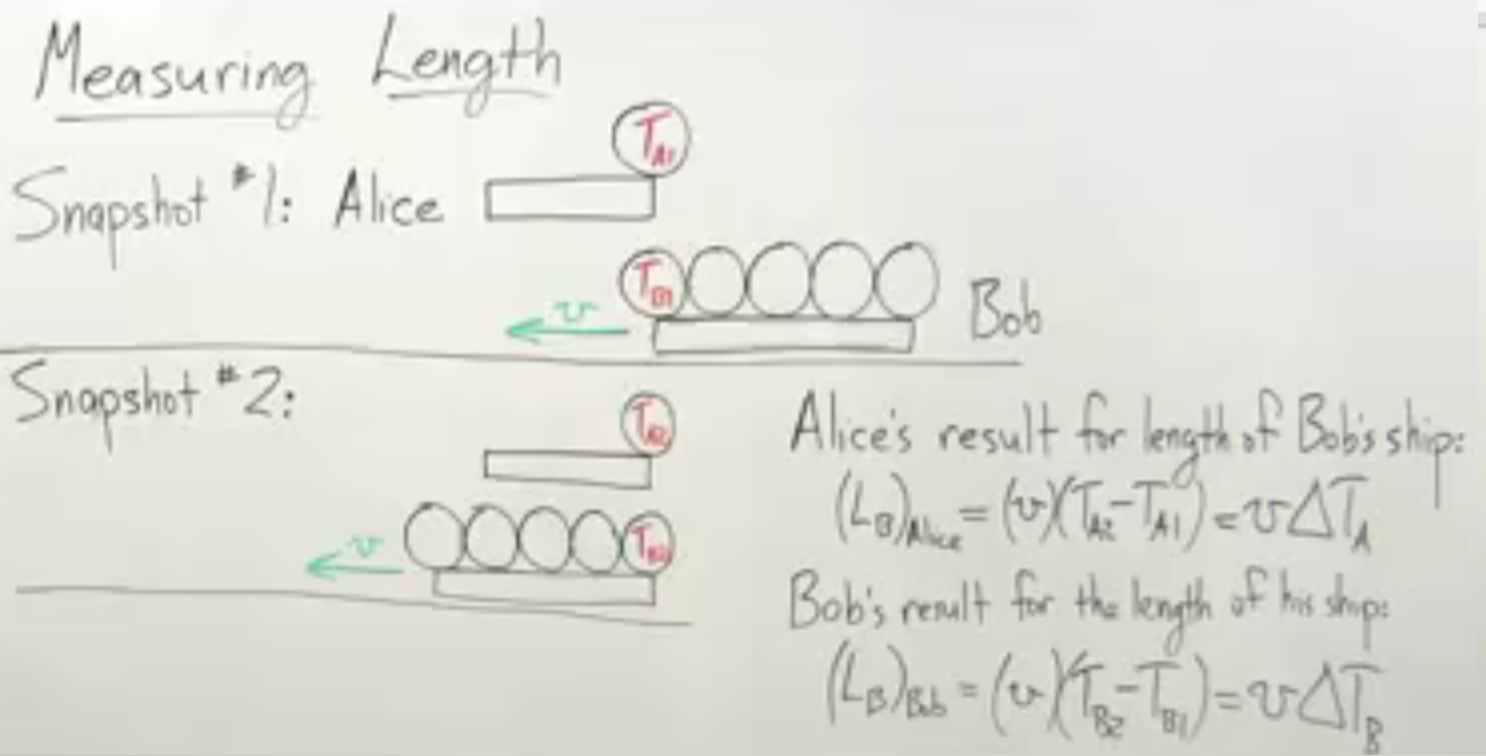 Measuring Length
Snapshot #1: Alice
T_A1
T_B1
v
Bob
Snapshot #2:
T_A2
T_B2
v
Alice's result for length of Bob's ship:
(L_B)_Alice = (v)(T_A2 - T_A1) = vΔT_A
Bob's result for the length of his ship:
(L_B)_Bob = (v)(T_B2 - T_B1) = vΔT_B